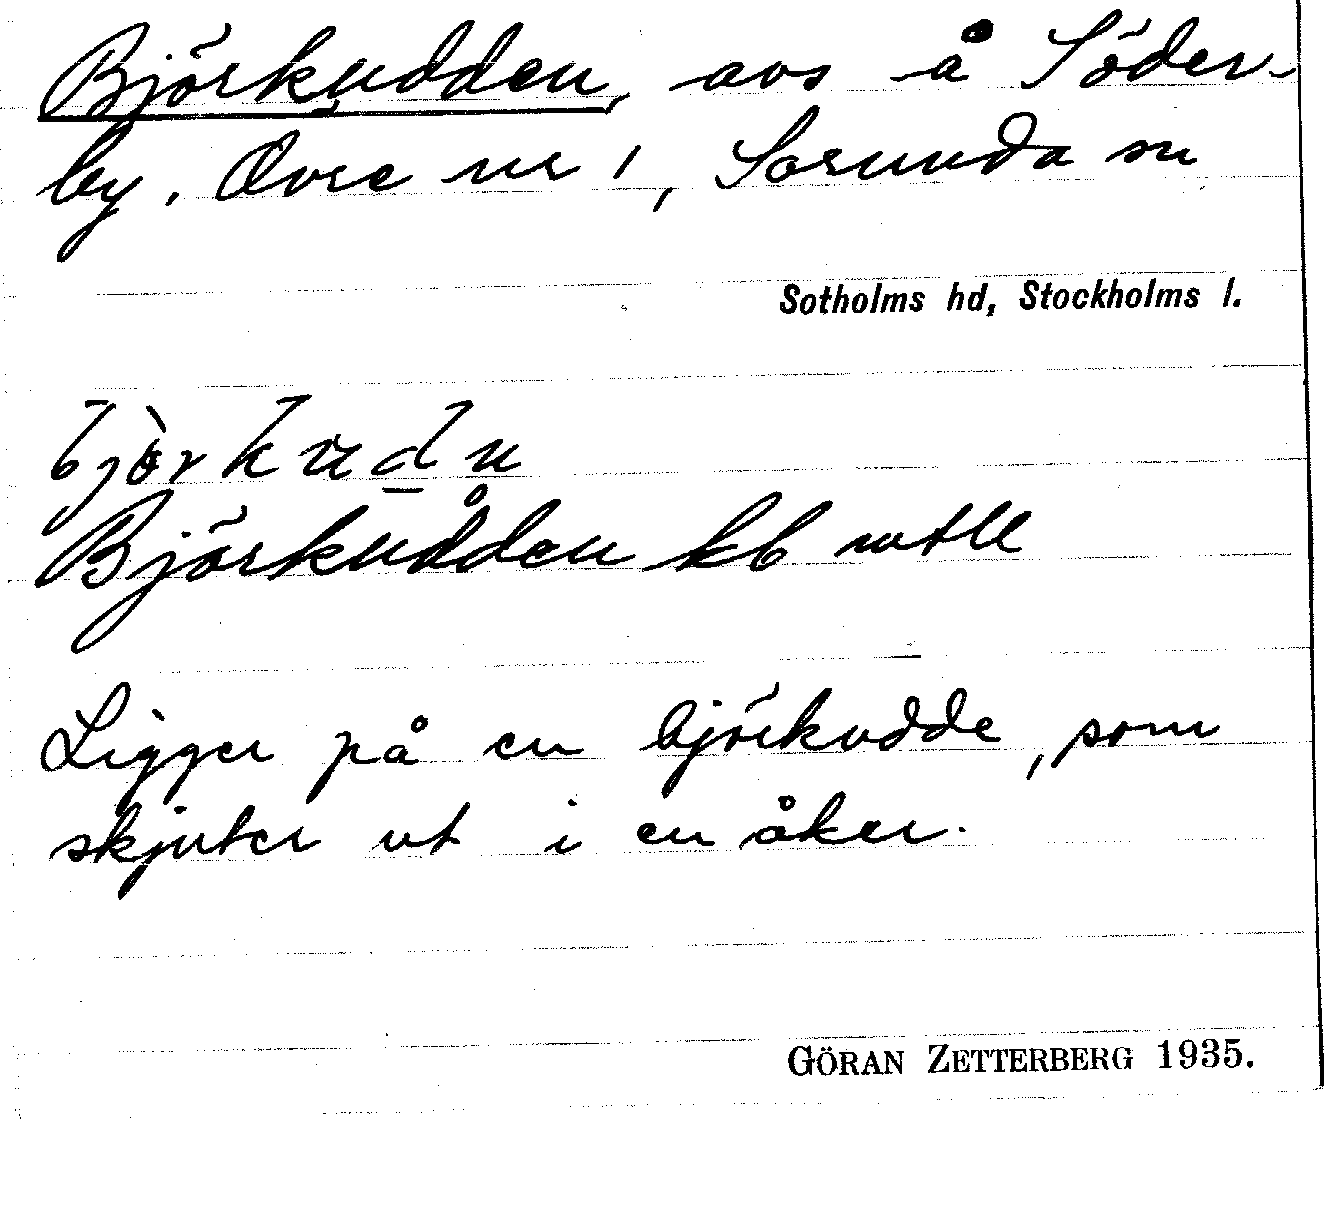 Björkudden, avs å Söder-
by. Övre nr 1, Sorunda sn
Sotholms hd, Stockholms l.
Björkudden kb mtll
Ligger på en björkudde, som
skjuter ut i en åker.
GÖRAN ZETTERBERG 1935.